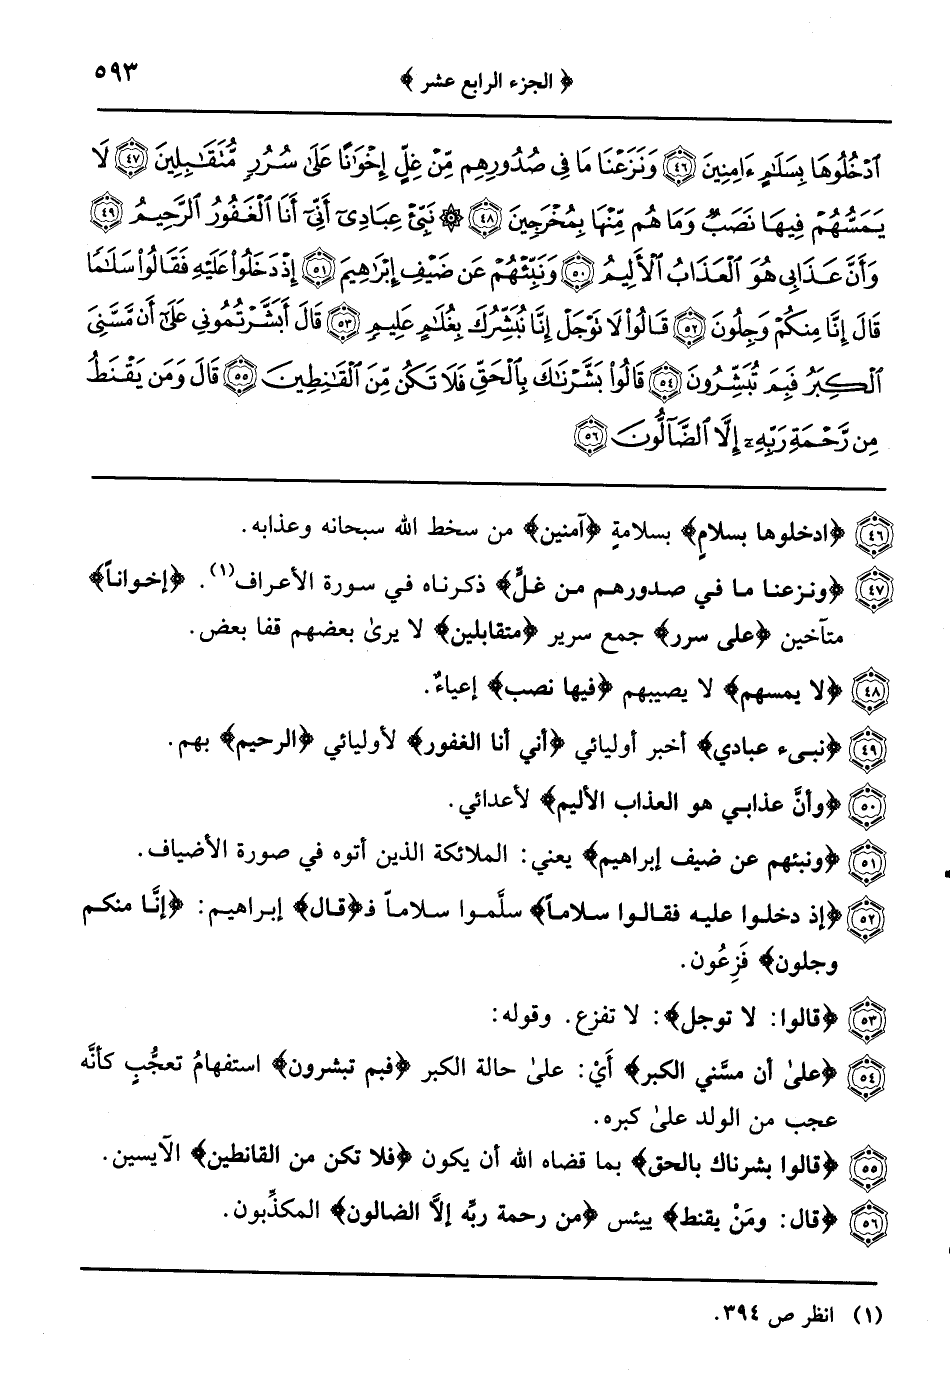 ﴿ الجزء الرابع عشر ﴾ ٥٩٣
ٱدْخُلُوهَا بِسَلَٰمٍ ءَامِنِينَ ٤٦ وَنَزَعْنَا مَا فِى صُدُورِهِم مِّنْ غِلٍّ إِخْوَٰنًا عَلَىٰ سُرُرٍ مُّتَقَٰبِلِينَ ٤٧ لَا
يَمَسُّهُمْ فِيهَا نَصَبٌ وَمَا هُم مِّنْهَا بِمُخْرَجِينَ ٤٨ ۞ نَبِّئْ عِبَادِىٓ أَنِّىٓ أَنَا ٱلْغَفُورُ ٱلرَّحِيمُ ٤٩
وَأَنَّ عَذَابِى هُوَ ٱلْعَذَابُ ٱلْأَلِيمُ ٥٠ وَنَبِّئْهُمْ عَن ضَيْفِ إِبْرَٰهِيمَ ٥١ إِذْ دَخَلُوا۟ عَلَيْهِ فَقَالُوا۟ سَلَٰمًا
قَالَ إِنَّا مِنكُمْ وَجِلُونَ ٥٢ قَالُوا۟ لَا تَوْجَلْ إِنَّا نُبَشِّرُكَ بِغُلَٰمٍ عَلِيمٍ ٥٣ قَالَ أَبَشَّرْتُمُونِى عَلَىٰٓ أَن مَّسَّنِىَ
ٱلْكِبَرُ فَبِمَ تُبَشِّرُونَ ٥٤ قَالُوا۟ بَشَّرْنَٰكَ بِٱلْحَقِّ فَلَا تَكُن مِّنَ ٱلْقَٰنِطِينَ ٥٥ قَالَ وَمَن يَقْنَطُ
مِن رَّحْمَةِ رَبِّهِۦٓ إِلَّا ٱلضَّآلُّونَ ٥٦
٤٦ ﴿ادخلوها بسلامٍ﴾ بسلامةٍ ﴿آمنين﴾ من سخط الله سبحانه وعذابه.
٤٧ ﴿ونزعنا ما في صدورهم من غلٍّ﴾ ذكرناه في سورة الأعراف(١). ﴿إخواناً﴾
متآخين ﴿على سرر﴾ جمع سرير ﴿متقابلين﴾ لا يرىٰ بعضهم قفا بعض.
٤٨ ﴿لا يمسهم﴾ لا يصيبهم ﴿فيها نصب﴾ إعياءٌ.
٤٩ ﴿نبىء عبادي﴾ أخبر أوليائي ﴿أني أنا الغفور﴾ لأوليائي ﴿الرحيم﴾ بهم.
٥٠ ﴿وأنَّ عذابي هو العذاب الأليم﴾ لأعدائي.
٥١ ﴿ونبئهم عن ضيف إبراهيم﴾ يعني: الملائكة الذين أتوه في صورة الأضياف.
٥٢ ﴿إذ دخلوا عليه فقالوا سلاماً﴾ سلَّموا سلاماً فـ﴿قال﴾ إبراهيم: ﴿إنَّا منكم
وجلون﴾ فَزِعُون.
٥٣ ﴿قالوا: لا توجل﴾: لا تفزع. وقوله:
٥٤ ﴿علىٰ أن مسَّني الكبر﴾ أَيْ: علىٰ حالة الكبر ﴿فبم تبشرون﴾ استفهامُ تعجُّبٍ كأنَّه
عجب من الولد علىٰ كبره.
٥٥ ﴿قالوا بشرناك بالحق﴾ بما قضاه الله أن يكون ﴿فلا تكن من القانطين﴾ الآيسين.
٥٦ ﴿قال: ومَنْ يقنط﴾ ييئس ﴿من رحمة ربِّه إلاَّ الضالون﴾ المكذِّبون.
(١) انظر ص ٣٩٤.